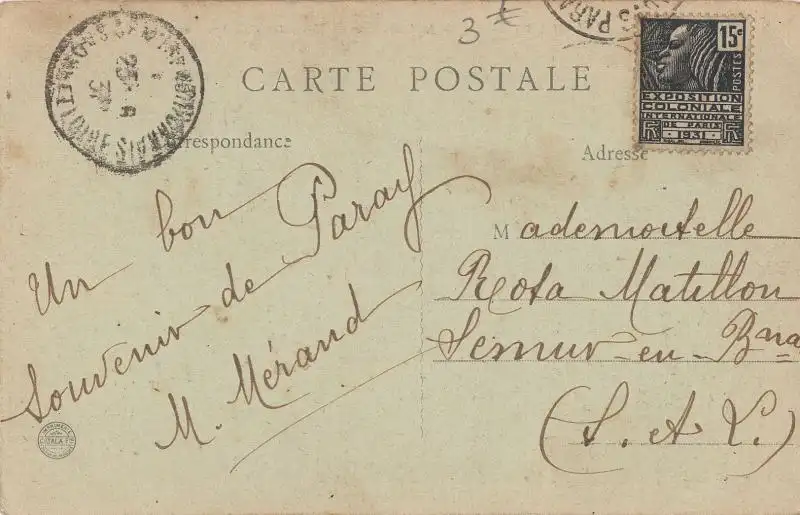 3
CARTE POSTALE
15c
POSTES
EXPOSITION
COLONIALE
INTERNATIONALE
DE PARIS
1931
Correspondance
Adresse
Un bon
Souvenir de Paray
M. Mérand
Mademoiselle
Rosa Matillon
Semur-en-Bna
(S. et L.)